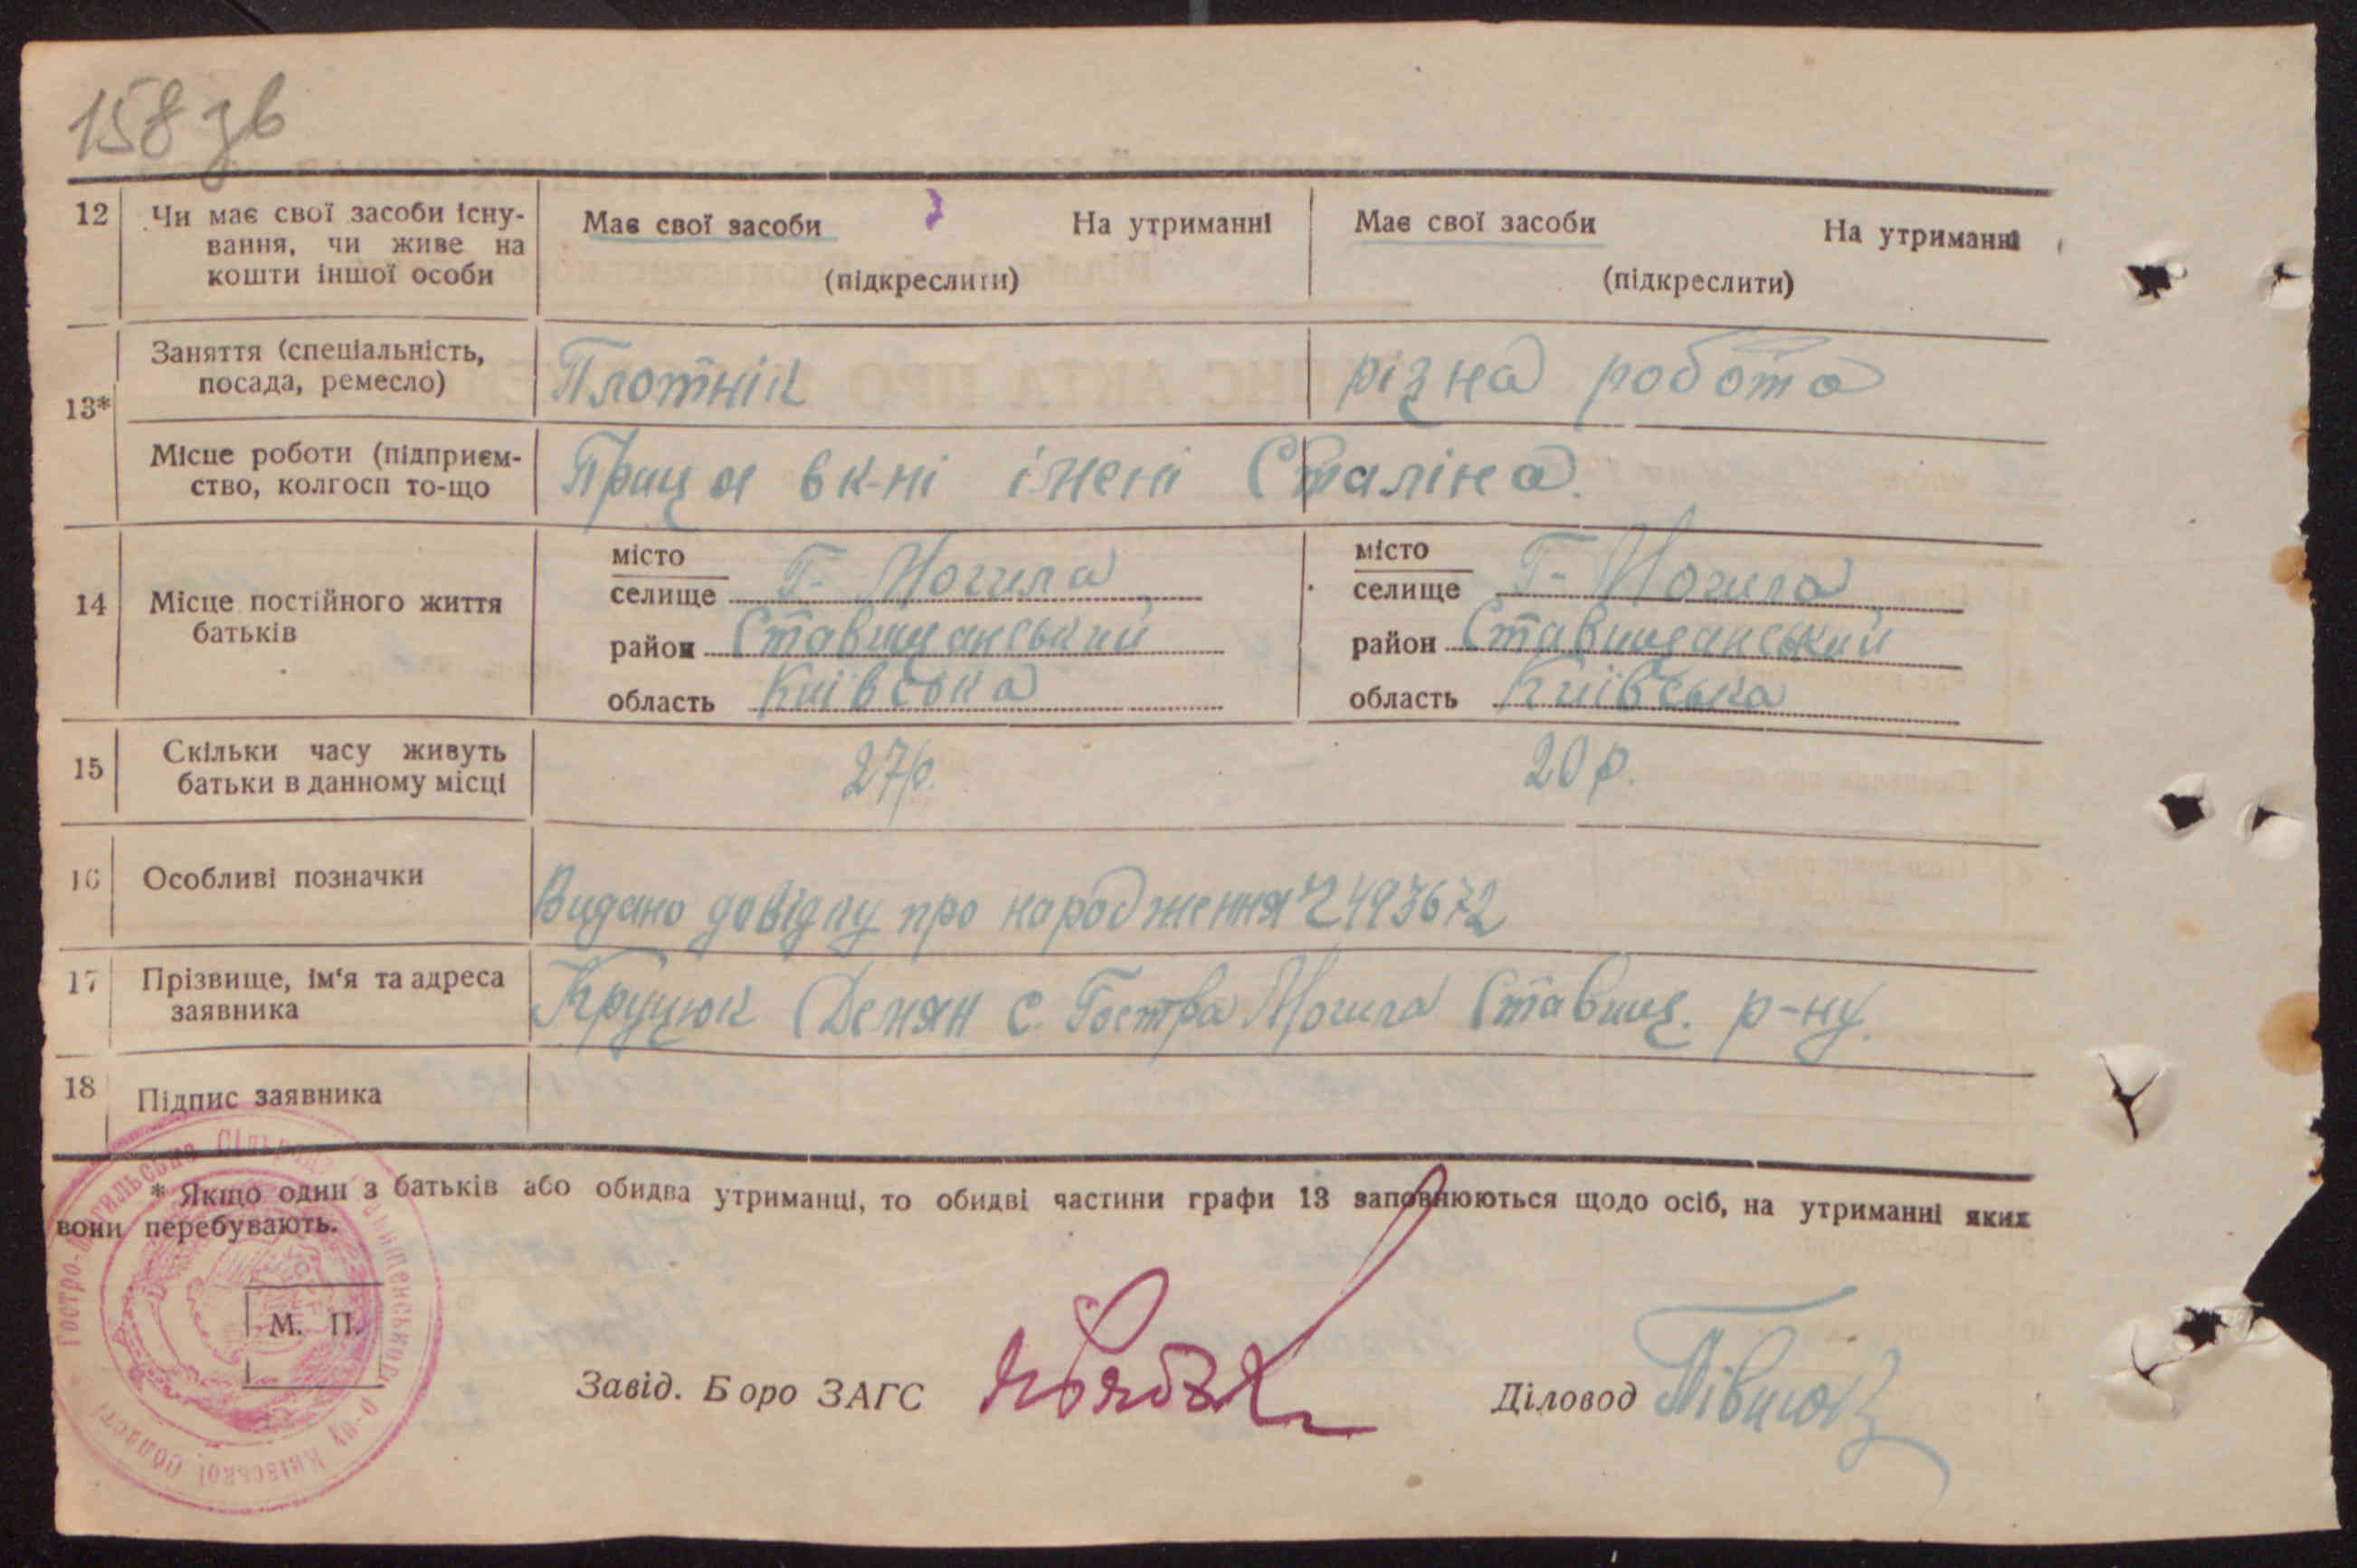 158 зв
12 Чи має свої засоби існу-
вання, чи живе на
кошти іншої особи
Має свої засоби На утриманні
(підкреслити)
Має свої засоби На утриманні
(підкреслити)
13*
Заняття (спеціальність,
посада, ремесло)
Плотнік
різна робота
Місце роботи (підприєм-
ство, колгосп то-що
Праця в к-ні імені Сталіна.
14 Місце постійного життя
батьків
місто
селище Г- Могила
район Ставищанський
область Київська
місто
селище Г- Могила
район Ставищанський
область Київська
15 Скільки часу живуть
батьки в данному місці
27р.
20 р.
16 Особливі позначки
Видано довідку про народження Ч 493672
17 Прізвище, ім'я та адреса
заявника
Круцюк Демян с. Гостра Могила Ставищ. р-ну.
18 Підпис заявника
* Якщо один з батьків або обидва утриманці, то обидві частини графи 13 заповнюються щодо осіб, на утриманні яких
вони перебувають.
М. П.
Завід. Боро ЗАГС
Діловод
Гостро-Могильська Сільрада Ставищенського р-ну Київської області